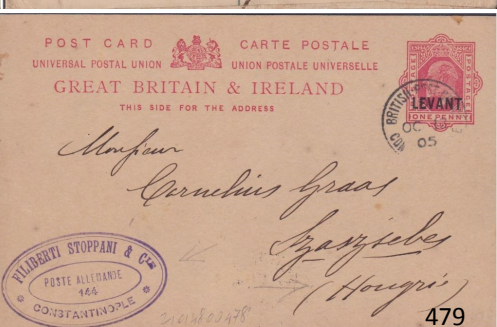 POST CARD CARTE POSTALE
UNIVERSAL POSTAL UNION UNION POSTALE UNIVERSELLE
GREAT BRITAIN & IRELAND
THIS SIDE FOR THE ADDRESS
POSTAGE
LEVANT
ONE PENNY
BRITISH POST
OC
05
CON
Monsieur
Cornelius Graas
Szászsebes
(Hongrie)
FILIBERTI STOPPANI & Cie
POSTE ALLEMANDE
144
CONSTANTINOPLE
479